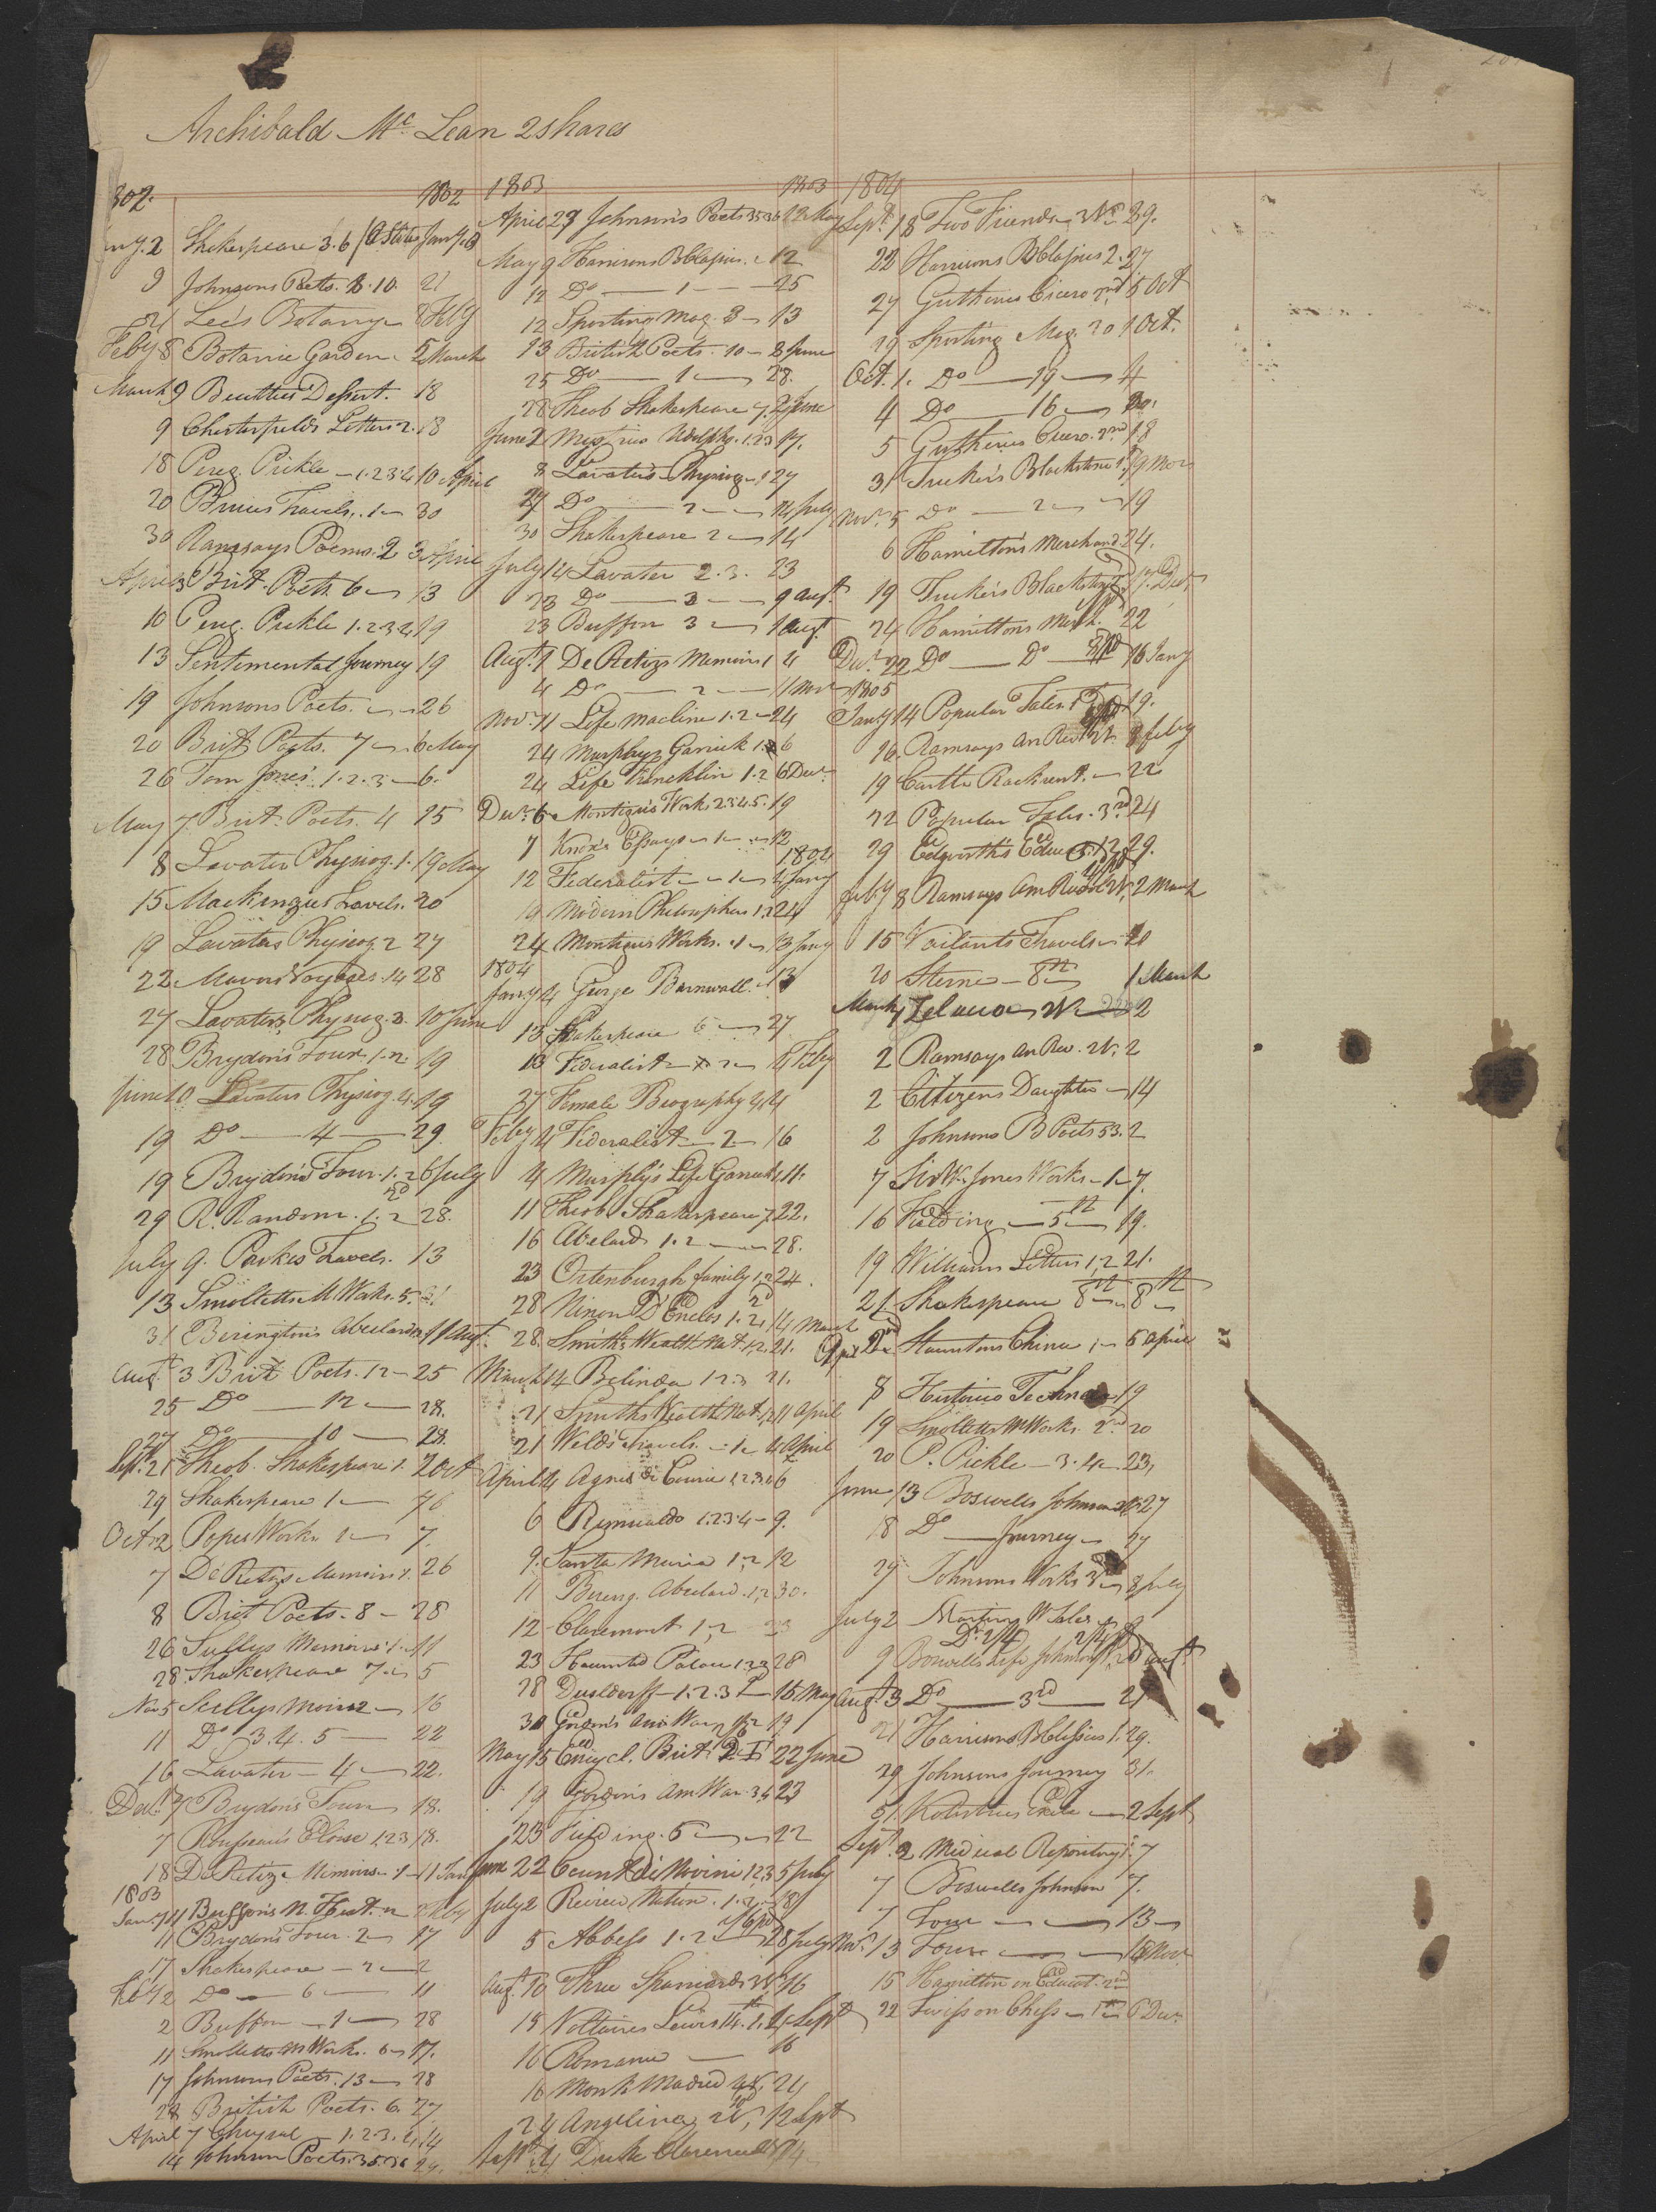 Archibald Mc Lean 2 shares
802. 1802
Jany. 2 Shakespeare 3.6 Jany. 9
9 Johnsons Poets. 8.10. 21
21 Lee's Botany 8 Feby
Feby 8 Botanic Garden 5 March
March 9 Beatties Dissert. 18
9 Chesterfields Letters 2. 18
18 Pereg. Pickle 1.2.3.4 10 April
20 Bruces Travels. 1 30
30 Ramsays Poems. 2 3 April
April 3 Brit. Poets. 6 13
10 Pereg. Pickle 1.2.3.4 19
13 Sentimental Journey 19
19 Johnsons Poets. 26
20 Brit Poets. 7 6 May
26 Tom Jones 1.2.3 6.
May 7 Brit. Poets. 4 15
8 Lavater Physiog. 1. 19 May
15 Mackenzies Travels. 20
19 Lavaters Physiog. 2 27
22 Mavors Voyages. 14 28
27 Lavaters Physiog. 3. 10 June
28 Brydon's Tour 1.2. 19
June 10 Lavaters Physiog. 4. 19
19 Do 4 29.
19 Brydon's Tour. 1.2 6 July
29 R. Random. 1.2 28.
July 9. Parkes Travels. 13
13 Smolletts M Works. 5.
31 Berington's Abelard 11 Augt.
Augt. 3 Brit Poets. 12 25
25 Do 12 28.
27 Do 10 28.
Sept. 21 Theob. Shakespeare 1. 2 Oct
29 Shakespeare 1
Oct. 2 Popes Works. 7.
7 De Retzs Memoirs 1. 26
8 Brit Poets. 8 28
26 Sullys Memoirs. 1. 11
28 Shakespeare 7 5
Nov 5 Sullys Moirs 2 16
11 Do 3.4.5 22
16 Lavater 4 22.
Decr. 7 Brydon's Tour 18.
7 Rousseau's Eloise 1.2.3 18.
18 De Retzs Memoirs 1 11 Jany
1803
Jany 11 Buffon's N. Hist. 2 Feby
11 Brydon's Tour. 2 17
17 Shakespeare 2 2
Feby 2 Do 6 11
2 Buffon 1 28
11 Smolletts M Works. 6 17.
17 Johnsons Poets. 13 28
28 British Poets. 6. 27
April 7 Chrysal 1.2.3.4. 14
14 Johnson Poets. 35.36 24.
1803 1803
April 27 Johnson's Poets 35.36 12 May
May 9 Harrisons B Classics. 2 12
12 Do 1 25
12 Sporting Mag. 3 13
13 British Poets. 10 2 June
25 Do 1 28.
28 Theob Shakespeare 7. 2 June
June 2 Mystries Udolpho. 1.2.3 17.
8 Lavater's Physiog 1 27
27 Do 2 14 July
30 Shakespeare 2 14
July 14 Lavater 2.3. 23
23 Do 3 9 Augt.
23 Buffon 3 1 Augt
Augt. 1 De Retzs Memoirs 1 4
4 Do 2 11 Nov
Nov. 11 Life Macline 1.2 24
24 Murphys Garrick 1.2 6
24 Life Francklin 1.2 6 Decr.
Decr. 6 Montagu's Works 2.3.4.5. 19
7 Knoxs Essays 1 12
1804
12 Federalist 1 4 Jany
19 Modern Philosophers 1.2 24
24 Montagus Works. 1 13 Jany
1804
Jany 4 George Barnwall. 13
13 Shakespeare 6 27
13 Federalist 2 4 Feby
27 Female Biography 4
Feby 4 Federalist 2 16
4 Murphy's Life Garrick 1. 11.
11 Theob. Shakespeare 7. 22.
16 Abelard 1.2 28.
23 Ortenburgh family 1.2 24.
28 Ninon D'Enclos 1.2. 14 March
28. Smiths Wealth Nat. 1.2. 21.
March 14 Belinda 1.2.3 21.
21 Smiths Wealth Nat. 1.2 11 April
21 Weld's Travels. 1 4 April
April 4 Agnes De Courci 1.2.3.4 6
6 Romualdo 1.2.3.4 9.
9. Santa Maria 1.2 12
11 Bereng. Abelard. 1.2 30.
12 Claremont 1.2 23
23 Haunted Palace 1.2.3 28
28 Dusldorff 1.2.3 15 May
30 Gordon's Am War 1.2 19.
May 15 Encycl. Brit. 22 June
19 Gordon's Am War 3.4 23
23 Fielding. 5 22
June 22 Count di Novini 1.2.3 5 July
July 2 Recess
5 Abbess 1.2 28 July
Augt. 10 Three Spaniards 16
15 Voltaires Lewis 14. 1. 4 Sept
16 Romance 16
16 Monk Madrid 24
24 Angelina 2V. 12 Sept
Sept. 4 Duke Clarence 14
1804
Sept. 18 Two Friends 29.
22 Harrisons B Classics 2. 27
27 Guthries Cicero 2nd 5 Oct
29 Sporting Mag. 20 1 Oct.
Oct. 1. Do 19 4
4 Do 16 Do.
5 Guthries Cicero. 2nd 18
31 Tucker's Blackstone 1st 9 Nov
Nov. 5 Do 2 19
6 Hamilton's Merchand. 24.
19 Tucker's Blackstone 17. Decr
24 Hamiltons Mercht. 22
Decr. 22 Do Do 3rd 16 Jany
1805
Jany 14 Popular Tales 19.
16. Ramsays Am Rev 2V. 8 feby
19 Castle Rackrent. 22
22 Popular Tales. 3rd 24
29 Edgworth's Educ. 1.2 29.
Feby 8 Ramsays Am Revol 2V. 2 March
15 Vailants Travels 20
20 Sterne 8th 1 March
March 1 Zeluco 2V 2
2 Ramsays Am Rev. 2V. 2
2 Citizens Daughter 14
2 Johnsons B Poets 53. 2
7 Sir W. Jones Works 1 7.
16 Fielding 5th 19.
19 Williams Letters 1.2 21.
21 Shakspeare 8th 8th
April 2nd Stauntons China 1 5 April
8 Historic Techna 19
19 Smolletts M Works. 2nd 20
20 P. Pickle 3.4 23.
June 13 Boswells Johnson 27
18 Do Journey 27
27 Johnsons Works 3d 8 July
July 2 Martin
9 Boswells Life Johnson Augt.
Augt. 3 Do 3rd 21
21 Harrisons B Classics 1. 29.
29 Johnsons Journey 31.
31 Kotzebues Exile 2 Sept
Sept. 2 Medical Repository 7
7 Boswells Johnson 7.
7 Tour 13
Nov. 13 Tour 15 Nov.
15 Hamilton on Educat. 2nd
22 Twiss on Chess 1st 6 Decr